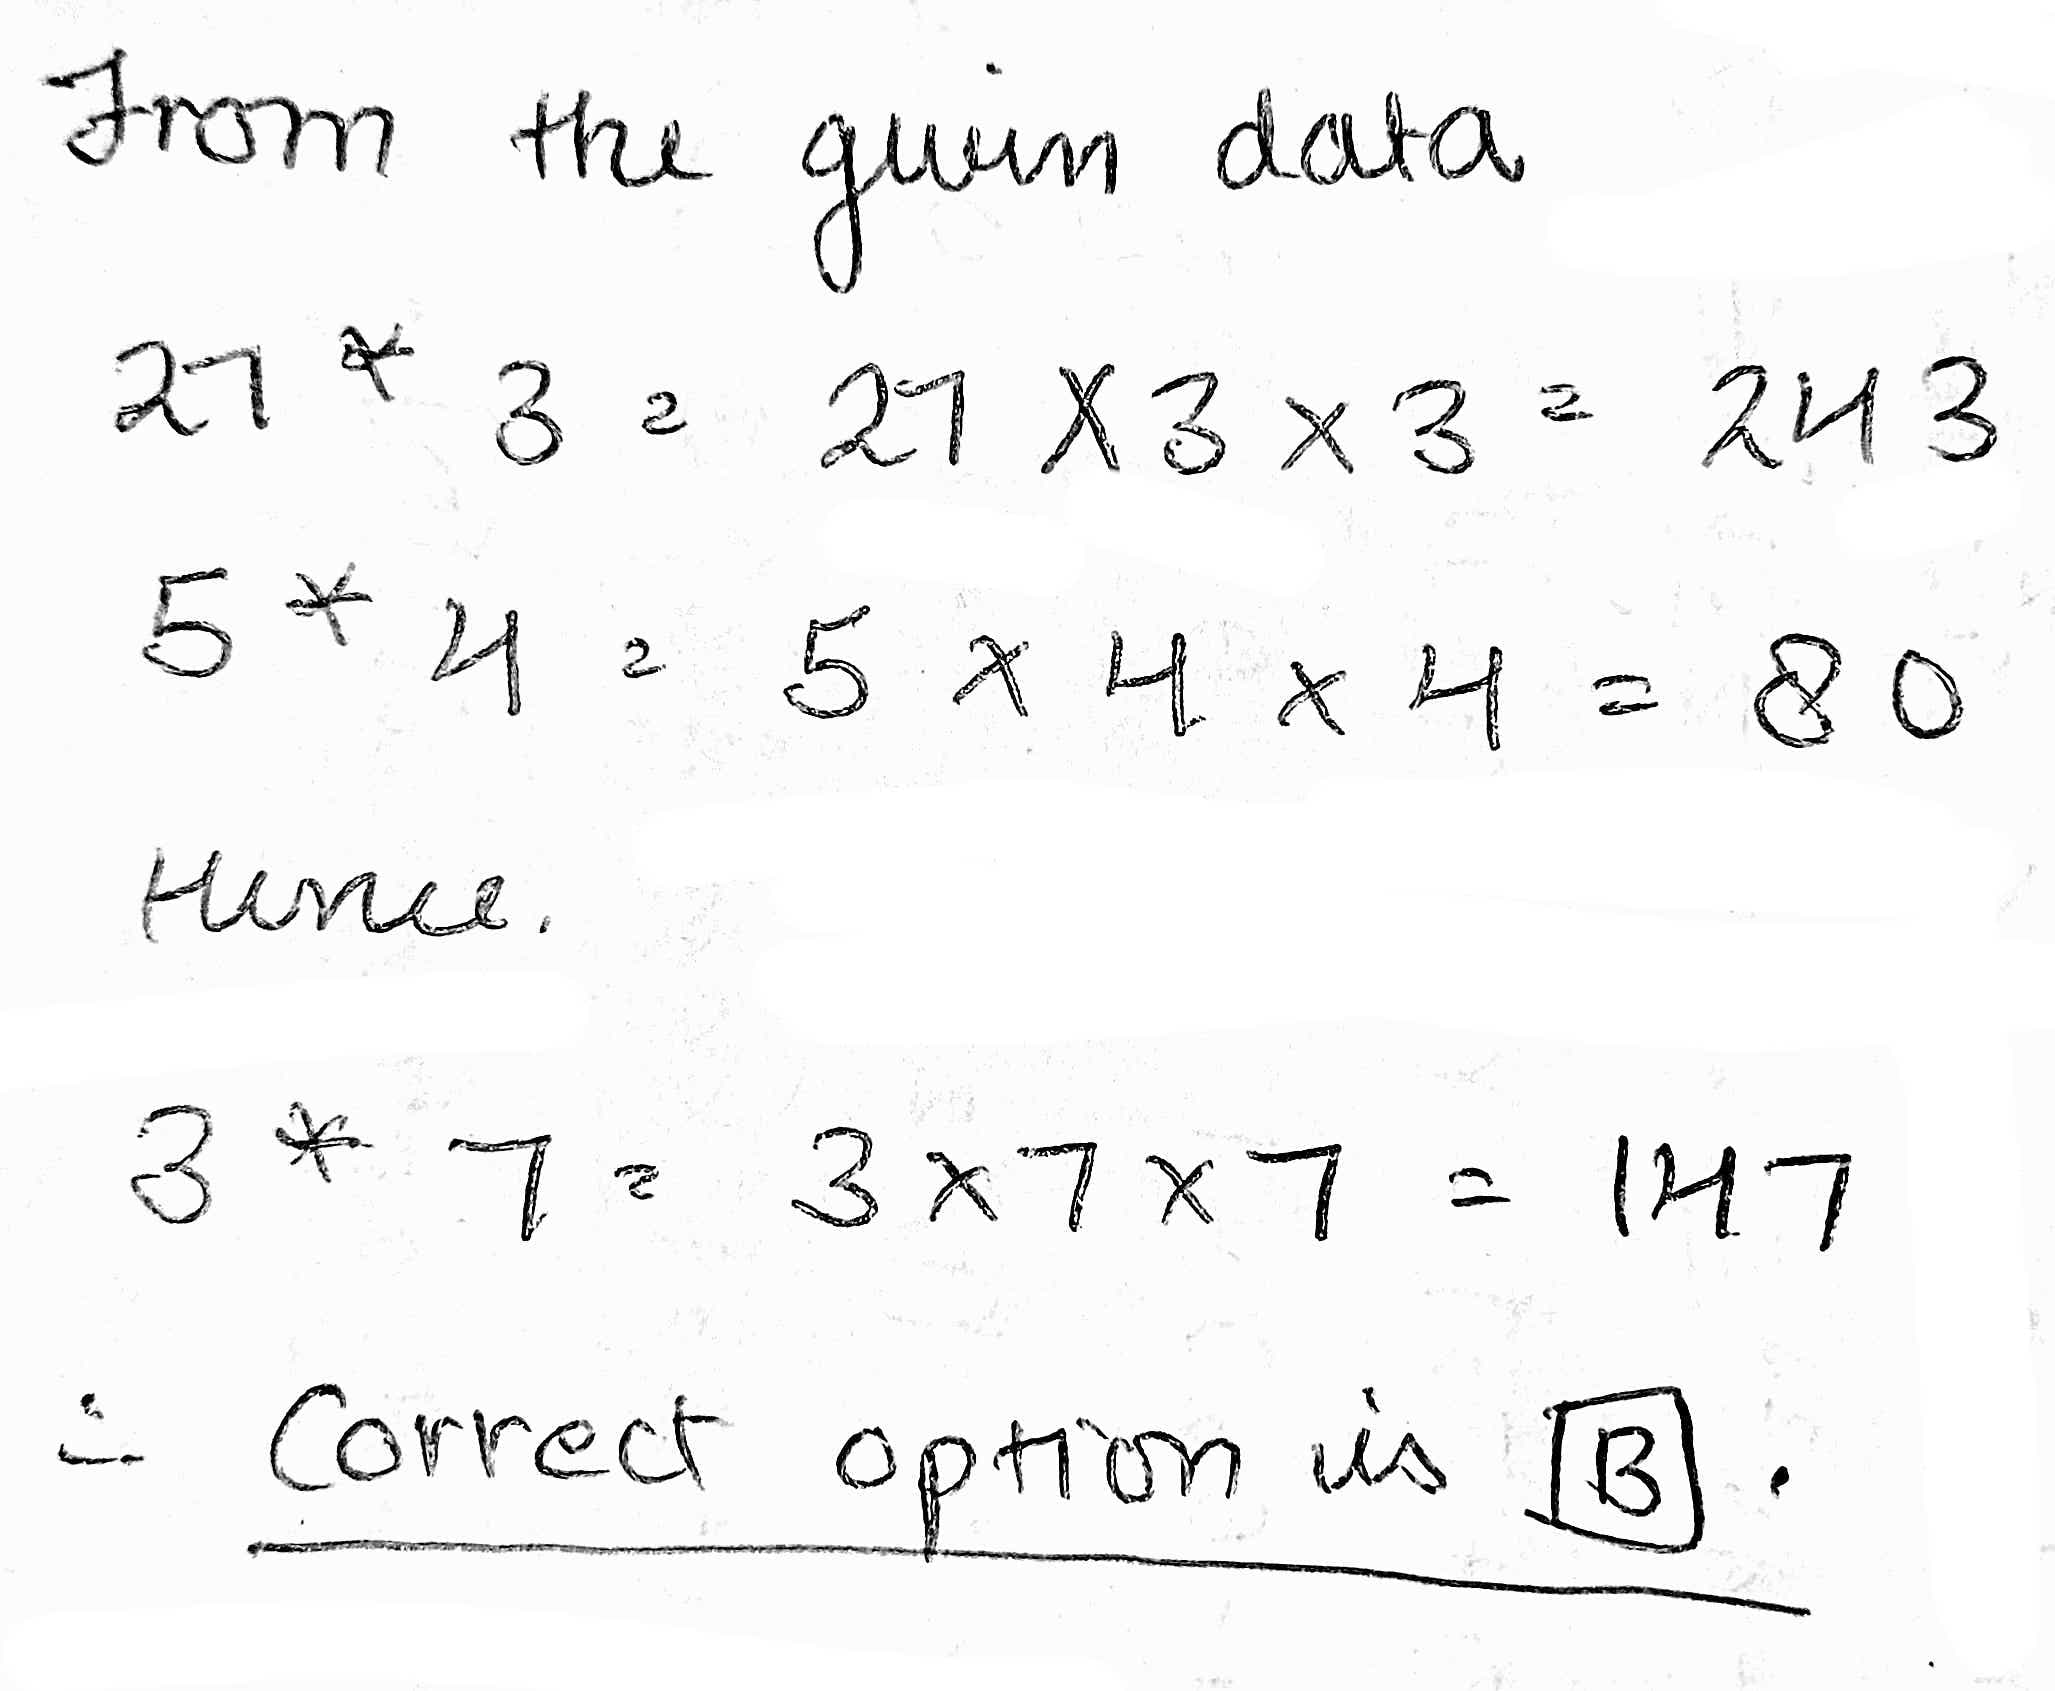 From the given data
27 * 3 = 27 × 3 × 3 = 243
5 * 4 = 5 × 4 × 4 = 80
Hence.
3 * 7 = 3 × 7 × 7 = 147
∴ Correct option is B.